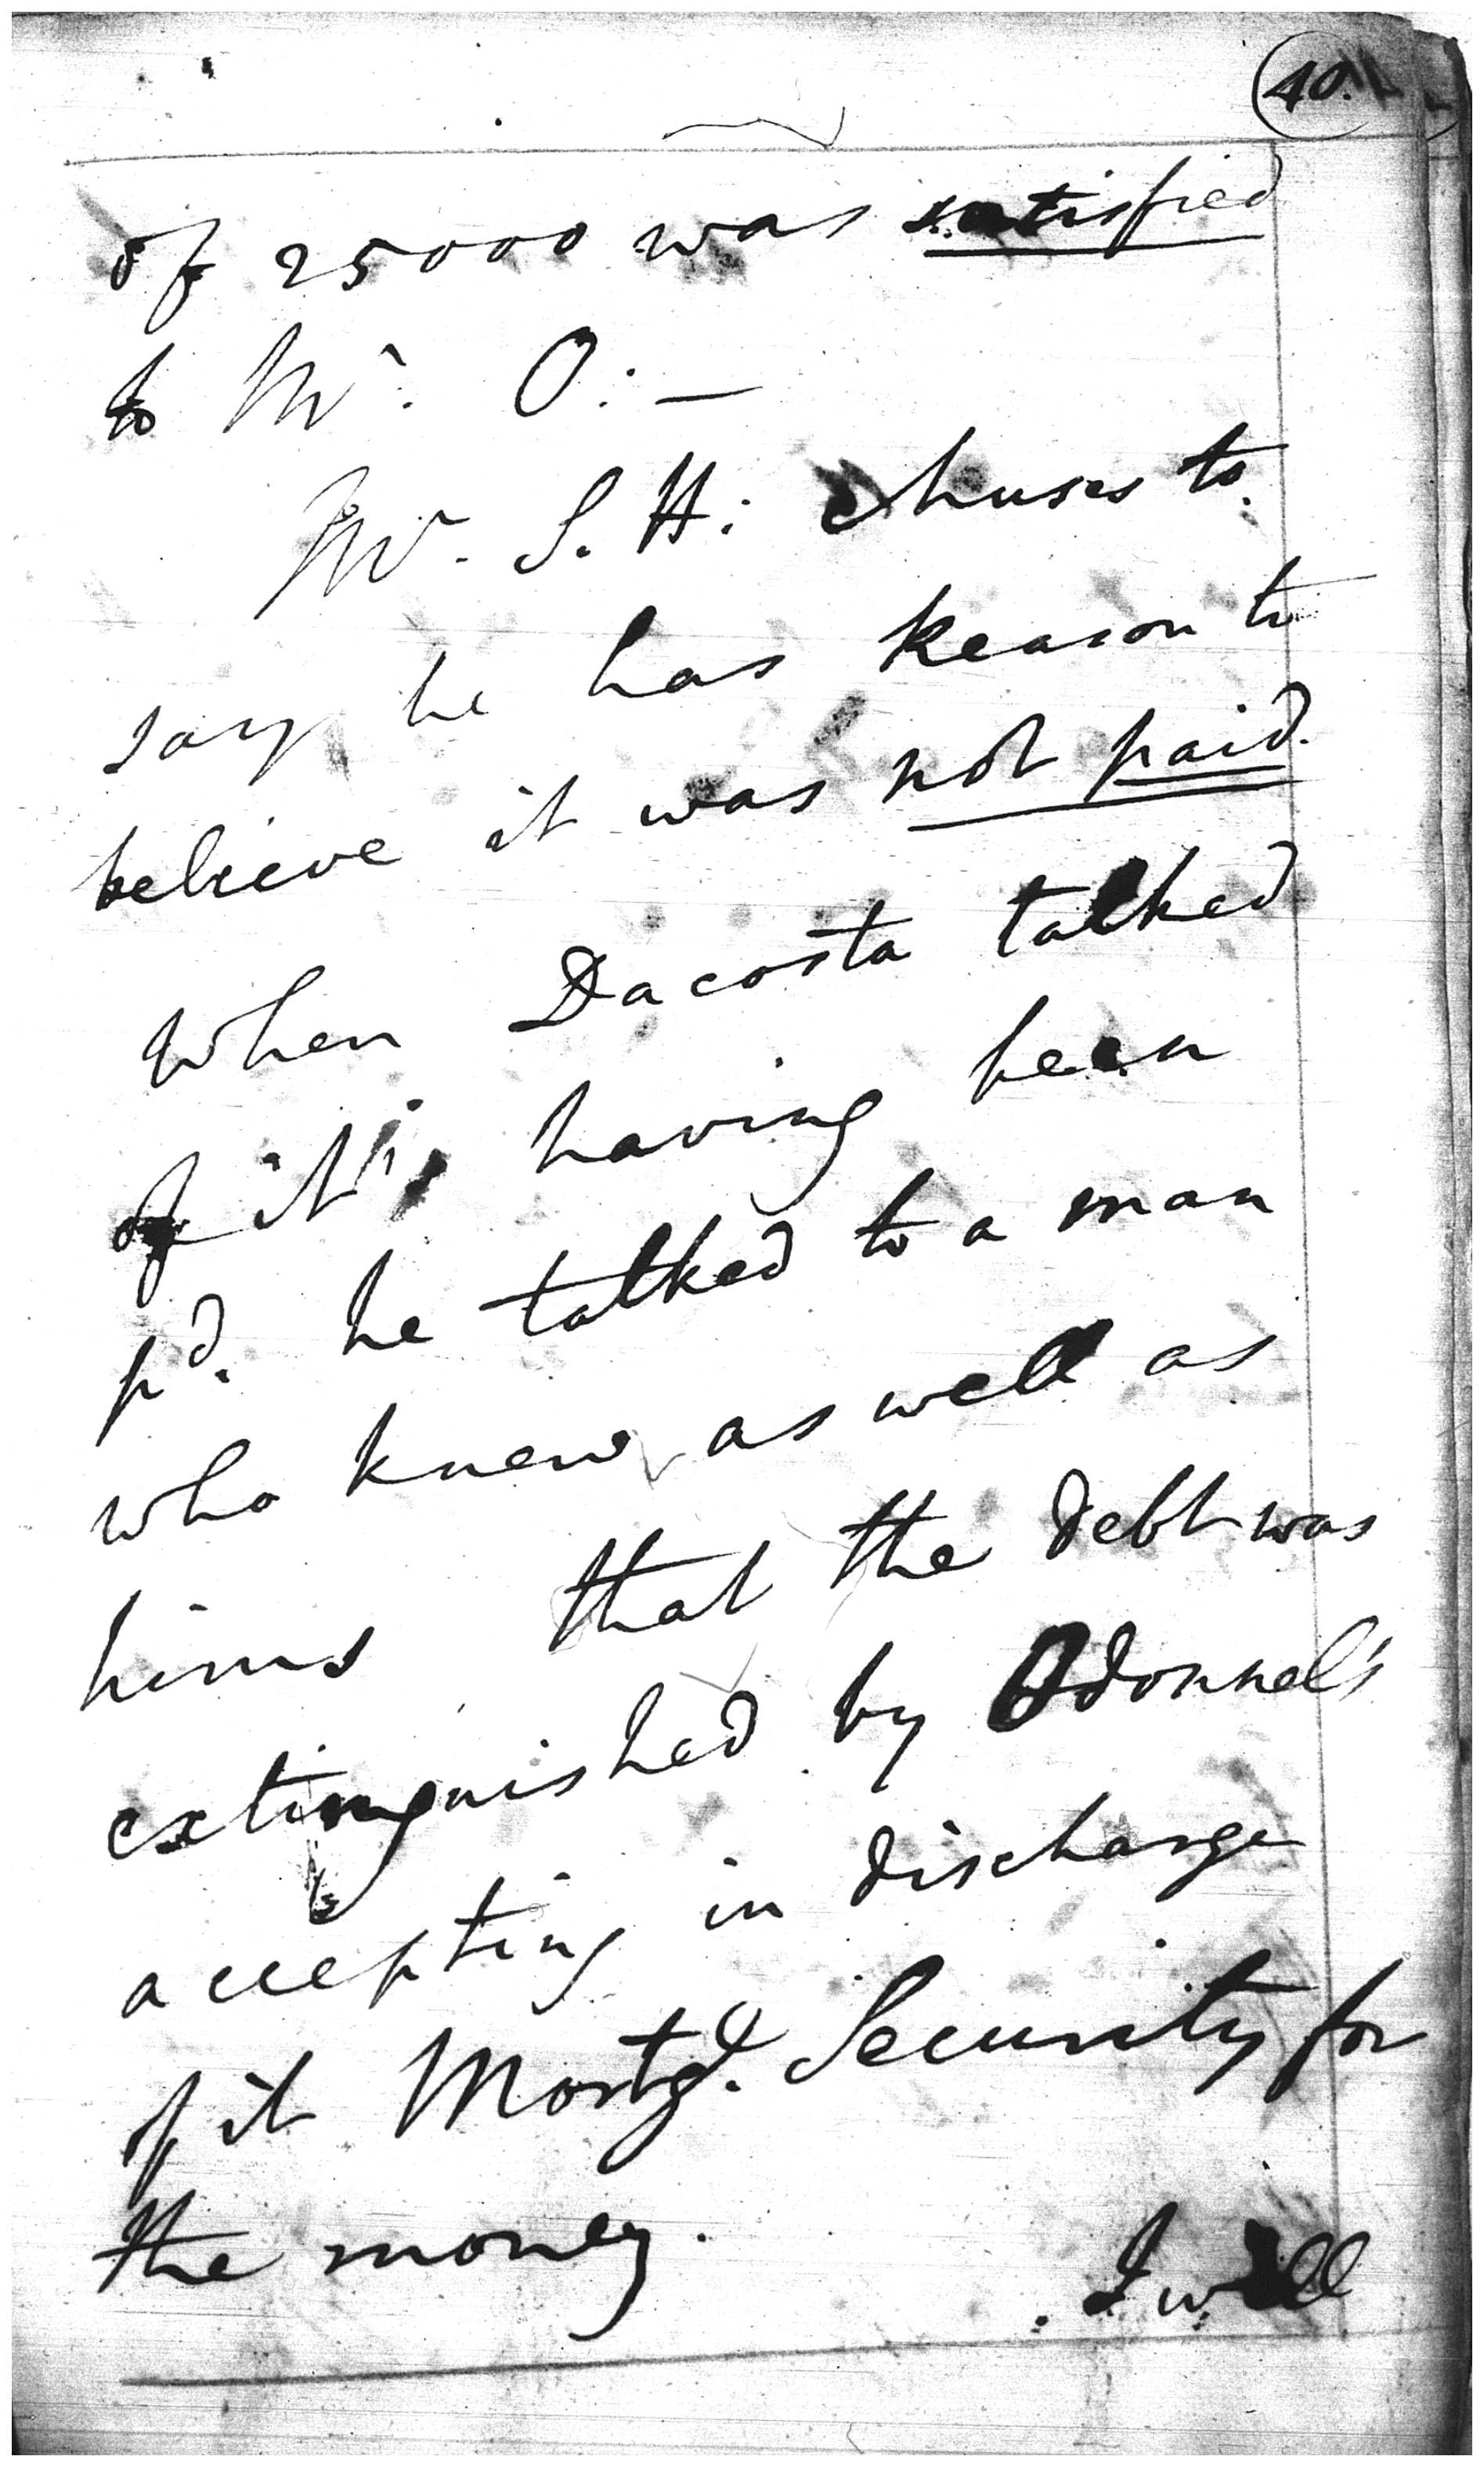 40.
of 25000 was satisfied
to Mr. O: —
Mr. S. H: chuses to
say he has Reason to
believe it was not paid.
When Dacosta talked
of it's having been
pd. he talked to a man
who knew as well as
hims that the debt was
extinguished by Odonnel's
accepting in discharge
of it Mortge. Security for
the money.
I will